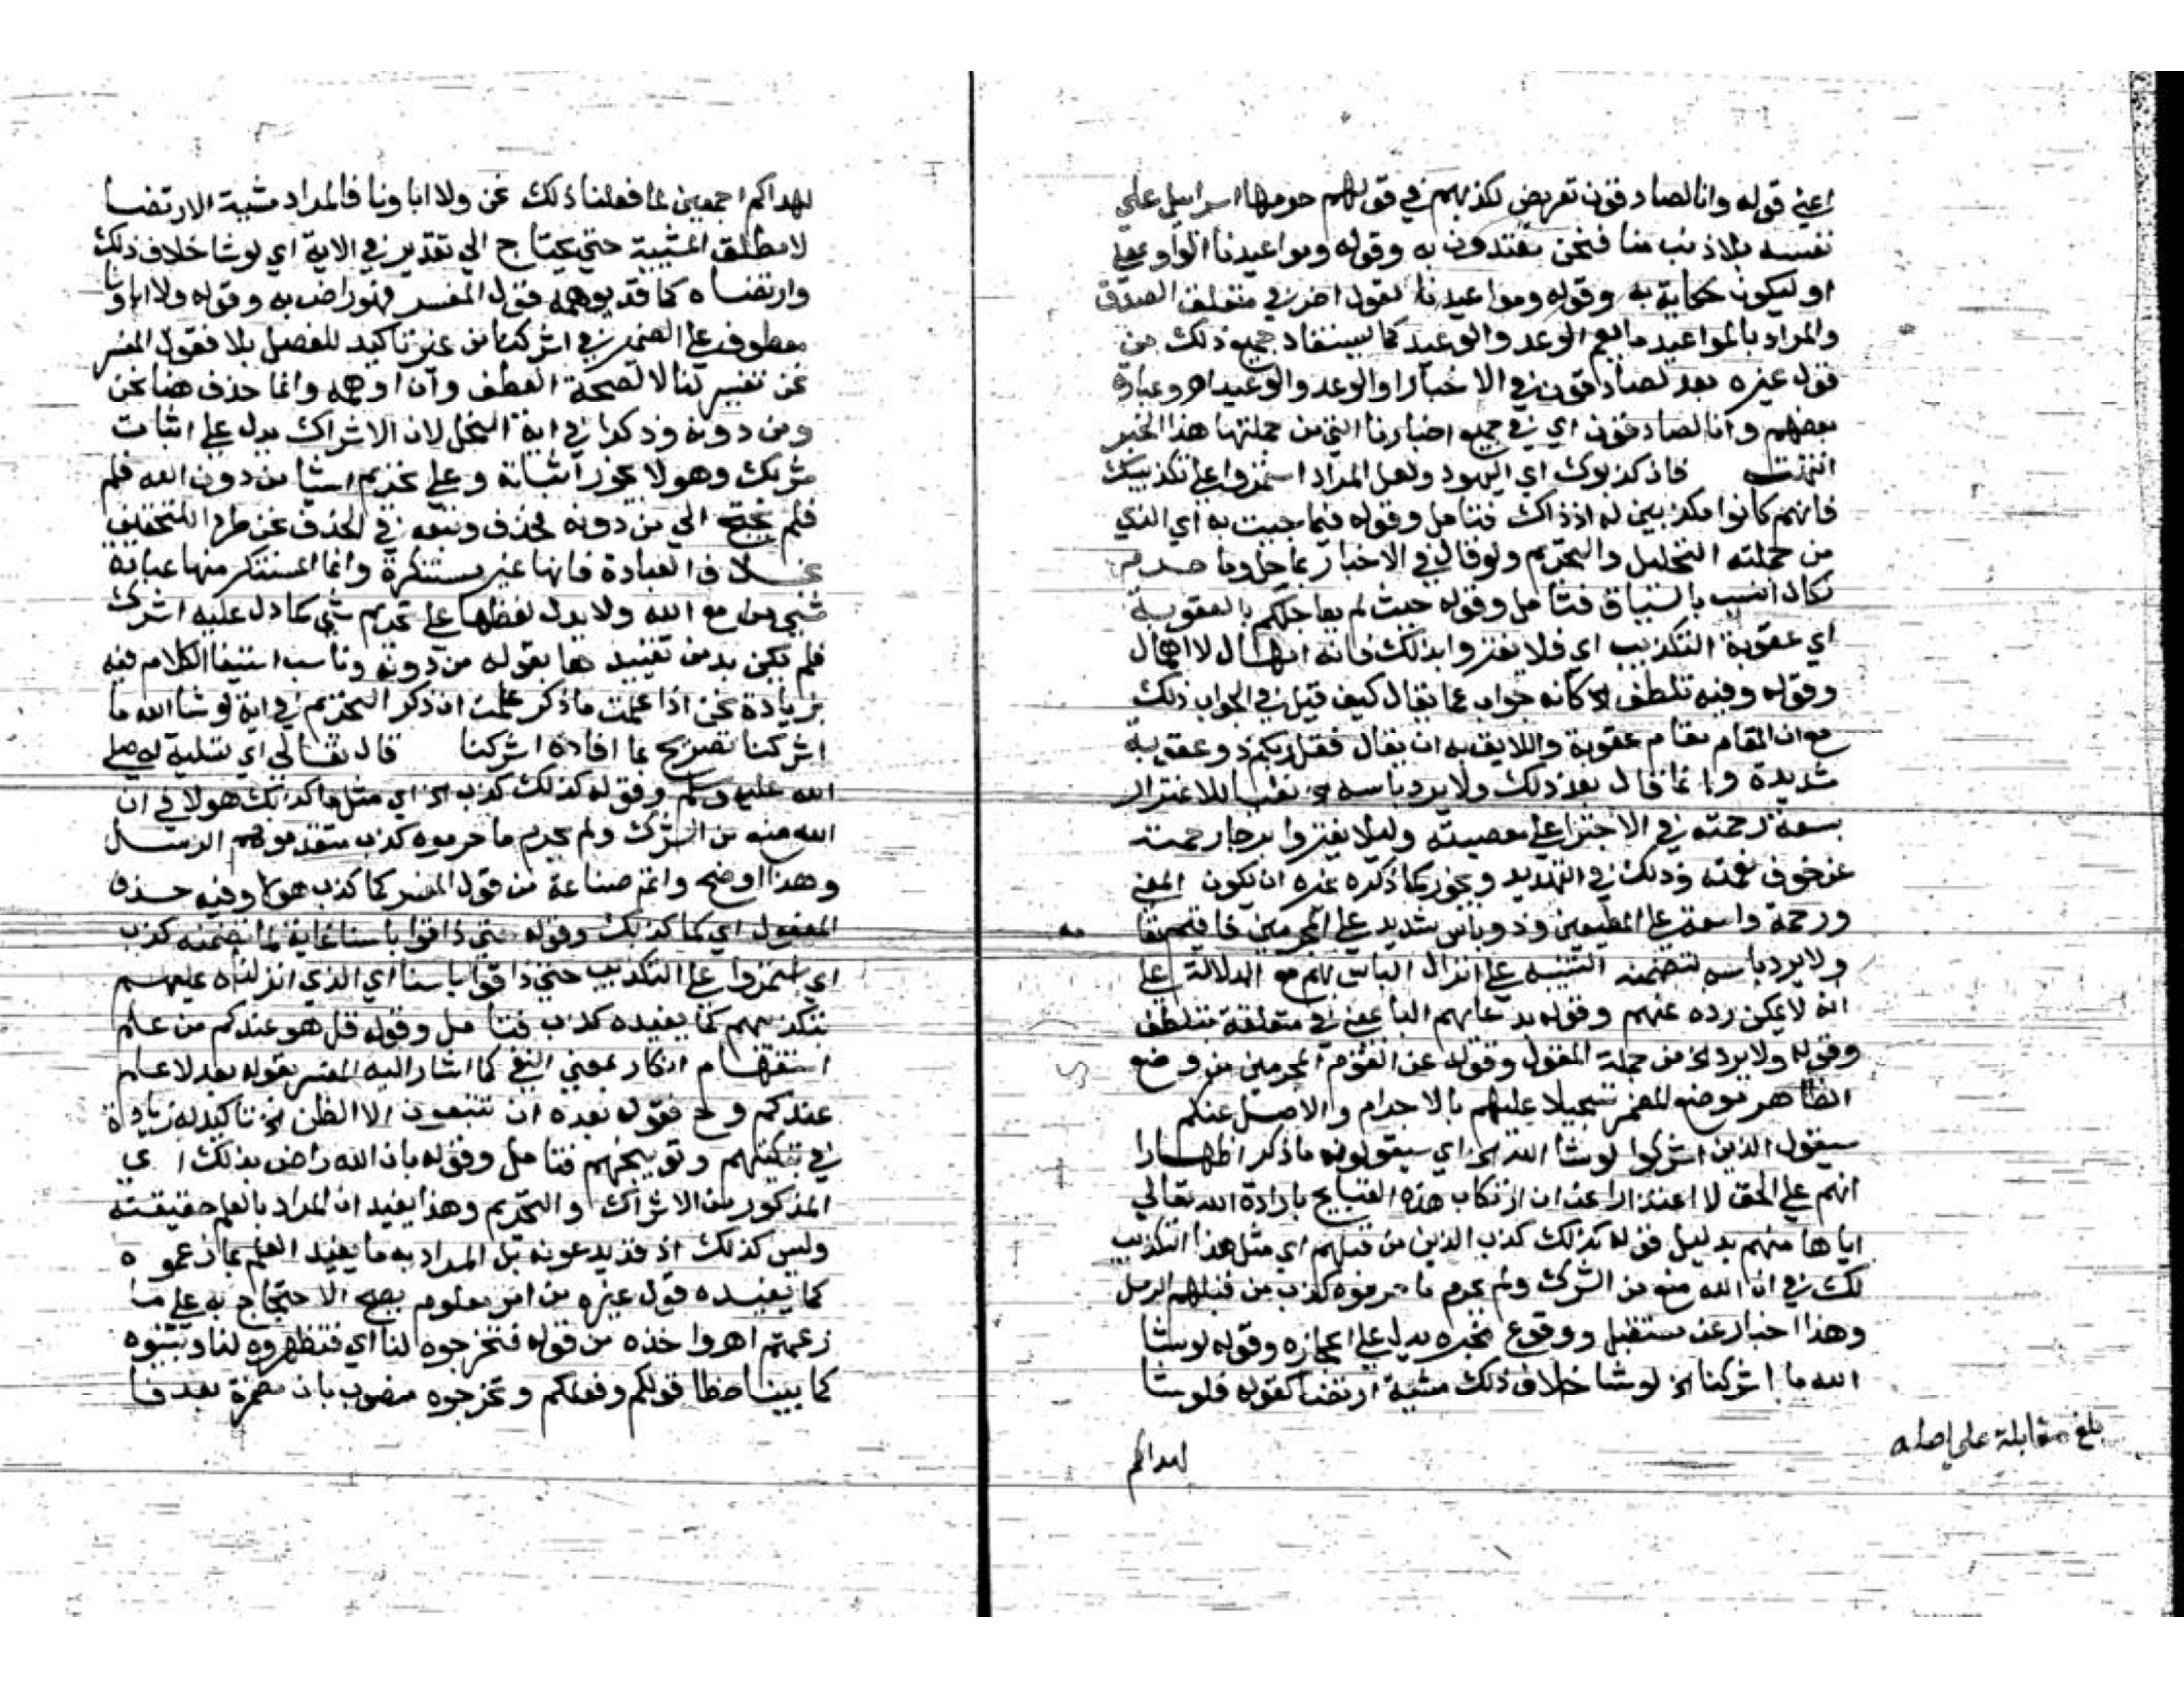 اعني قوله وانا لصادقون تعريض لكذبهم في قولهم حرمها اسراييل علي
نفسه بلا ذنب منا فنحن مقتدون به وقوله ومواعيدنا الواو بمعني
او ليكون حكاية به وقوله ومواعيدنا لقول اخر في متعلف الصدق
والمراد بالمواعيد ما يعم الوعد والوعيد كما يستفاد جميع ذلك من
قول غيره بعد لصادقون في الاخبار او الوعد والوعيد اهـ وعبارة
بعضهم وانا لصادقون اي في جميع اخبارنا التي من جملتها هذا الخبر
انتهت فان كذبوك اي اليهود ولعل المراد استمروا علي تكذيبك
فانهم كانوا مكذبين له اذ ذاك فتامل وقوله فيما جيت به اي الذي
من جملته التحليل والتحريم ولو قال في الاخبار بما حل وما حرم
لكان انسب بالسياق فتامل وقوله حيث لم يعاجلكم بالعقوبة
اي عقوبة التكذيب اي فلا تغتروا بذلك فانه امهال لا اهمال
وقوله وفيه تلطف الخ كانه جواب عما يقال كيف قيل في الجواب ذلك
مع ان المقام مقام عقوبة واللايق به ان يقال فقل ربكم ذو عقوبة
شديدة وانما قال بعد ذلك ولا يرد باسه الخ نفيا للاغترار
بسعة رحمته في الاجترا علي معصيته وليلا يغتروا برجا رحمته
عن خوف نقمته وذلك في التهديد ويجوز كما ذكره غيره ان يكون المعني
ورحمة واسعة علي المطيعين وذو باس شديد علي المجرمين فاقيم مقا
مه
ولا يرد باسه لتضمنه التنبيه علي انزال الباس بهم مع الدلالة علي
انه لا يمكن رده عنهم وقوله بدعايهم الباء في متعلقة بتلطف
وقوله ولا يرد الخ من جملة المقول وقوله عن القوم المجرمين من وضع
الظاهر موضع المضمر تسجيلا عليهم بالاجرام والاصل عنكم
سيقول الذين اشركوا لو شا الله الخ اي سيقولون ما ذكر اظهارا
انهم علي الحق لا اعتذارا عن ارتكاب هذه القبايح بارادة الله تعالي
اياها منهم بدليل قوله كذلك كذب الذين من قبلهم اي مثل هذا التكذيب
لك في ان الله منع من الشرك ولم يحرم ما حرموه كذب من قبلهم الرسل
وهذا اخبار عن مستقبل ووقوع مخبره يدل علي اعجازه وقوله لو شا
الله ما اشركنا الخ لو شا خلاف ذلك مشية ارتضا كقوله فلو شا
بلغ مقابلة علي اصله
لهداكم
لهداكم اجمعين لما فعلنا ذلك نحن ولا اباونا فالمراد مشية الارتضا
لا مطلق المشيية حتي يحتاج الي تقدير في الاية اي لو شا خلاف ذلك
وارتضاه كما قد يوهمه قول المفسر فهو راض به وقوله ولا اباونا
معطوف علي الضمير في اشركنا من غير تاكيد للفصل بلا فقول المفسر
نحن تفسير لنا لا لصحة العطف وان اوهمه وانما حذف هنا نحن
ومن دونه وذكرا في اية النحل لان الاشراك يدل علي اثبات
شريك وهو لا يجوز اثباته وعلي تحريم اشيا من دون الله فلم
فلم يحتج الي من دونه لحذف وتبعه في الحذف نحن طردا للتخفيف
بخلاف العبادة فانها غير مستنكرة وانما المستنكر منها عبادة
شي مع الله ولا يدل لفظها علي تحريم شي كما دل عليه اشرك
فلم يكن بد من تقييدها بقوله من دونه وناسب استيفا الكلام فيه
بزيادة نحن اذا علمت ما ذكر علمت ان ذكر التحريم في اية لو شا الله ما
اشركنا تصريح بما افاده اشركنا قال تعالي اي تسلية له صلي
الله عليه وسلم وقوله كذلك كذب الخ اي مثل ما كذبك هولا في ان
الله منع من الشرك ولم يحرم ما حرموه كذب متقدموهم الرسل
وهذا اوضح واتم صناعة من قول المفسر كما كذب هولا وفيه حذف
المفعول اي كما كذبك وقوله حتي ذاقوا باسنا غاية لما تضمنه كذب
اي استمروا علي التكذيب حتي ذاقوا باسنا اي الذي انزلناه عليهم
بتكذيبهم كما يفيده كذب فتامل وقوله قل هل عندكم من علم
استفهام انكار بمعني النفي كما اشار اليه المفسر بقوله بعد لا علم
عندكم وح فقول بعده ان تتبعون الا الظن الخ تاكيد له زيادة
في تبكيتهم وتوبيخهم فتامل وقوله بان الله راض بذلك اي
المذكور من الاشراك والتحريم وهذا يفيد ان المراد بالعلم حقيقته
وليس كذلك اذ قد يدعونه بل المراد به ما يفيد العلم بما زعموه
كما يفيده قول غيره من امر معلوم يصح الاحتجاج به علي ما
زعمتم اهـ واخذه من قوله فتخرجوه لنا اي فتظهروه لنا وتبينوه
كما بينا خطا قولكم وفعلكم وتخرجوه منصوب بان مضمرة بعد فا